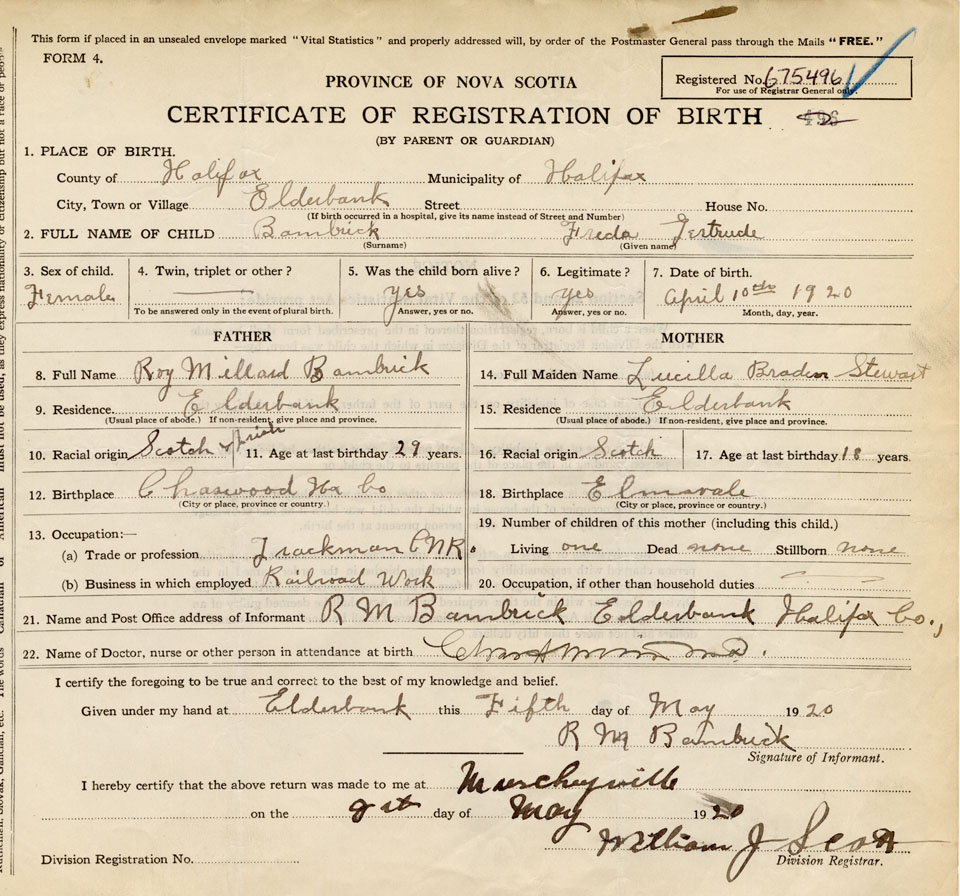 This form if placed in an unsealed envelope marked "Vital Statistics" and properly addressed will, by order of the Postmaster General pass through the Mails "FREE."
FORM 4.
PROVINCE OF NOVA SCOTIA
Registered No. 675496
For use of Registrar General only.
CERTIFICATE OF REGISTRATION OF BIRTH
(BY PARENT OR GUARDIAN)
1. PLACE OF BIRTH.
County of Halifax Municipality of Halifax
City, Town or Village Elderbank Street House No.
(If birth occurred in a hospital, give its name instead of Street and Number)
2. FULL NAME OF CHILD Bambrick Freda Gertrude
(Surname) (Given name)
3. Sex of child. 4. Twin, triplet or other? 5. Was the child born alive? 6. Legitimate? 7. Date of birth.
Female yes yes April 10th 1920
To be answered only in the event of plural birth. Answer, yes or no. Answer, yes or no. Month, day, year.
FATHER MOTHER
8. Full Name Roy Millard Bambrick 14. Full Maiden Name Lucilla Braden Stewart
9. Residence. Elderbank 15. Residence Elderbank
(Usual place of abode.) If non-resident, give place and province. (Usual place of abode.) If non-resident, give place and province.
10. Racial origin Scotch & Irish 11. Age at last birthday 29 years. 16. Racial origin Scotch 17. Age at last birthday 18 years.
12. Birthplace Chaswood Hx Co 18. Birthplace Elmsvale
(City or place, province or country.) (City or place, province or country.)
13. Occupation:— 19. Number of children of this mother (including this child.)
(a) Trade or profession Trackman CNR. Living one Dead none Stillborn none
(b) Business in which employed Railroad Work 20. Occupation, if other than household duties
21. Name and Post Office address of Informant R M Bambrick Elderbank Halifax Co.,
22. Name of Doctor, nurse or other person in attendance at birth
I certify the foregoing to be true and correct to the best of my knowledge and belief.
Given under my hand at Elderbank this Fifth day of May 1920
R M Bambrick
Signature of Informant.
I hereby certify that the above return was made to me at
on the day of May 1920
William J Scott
Division Registrar.
Division Registration No.